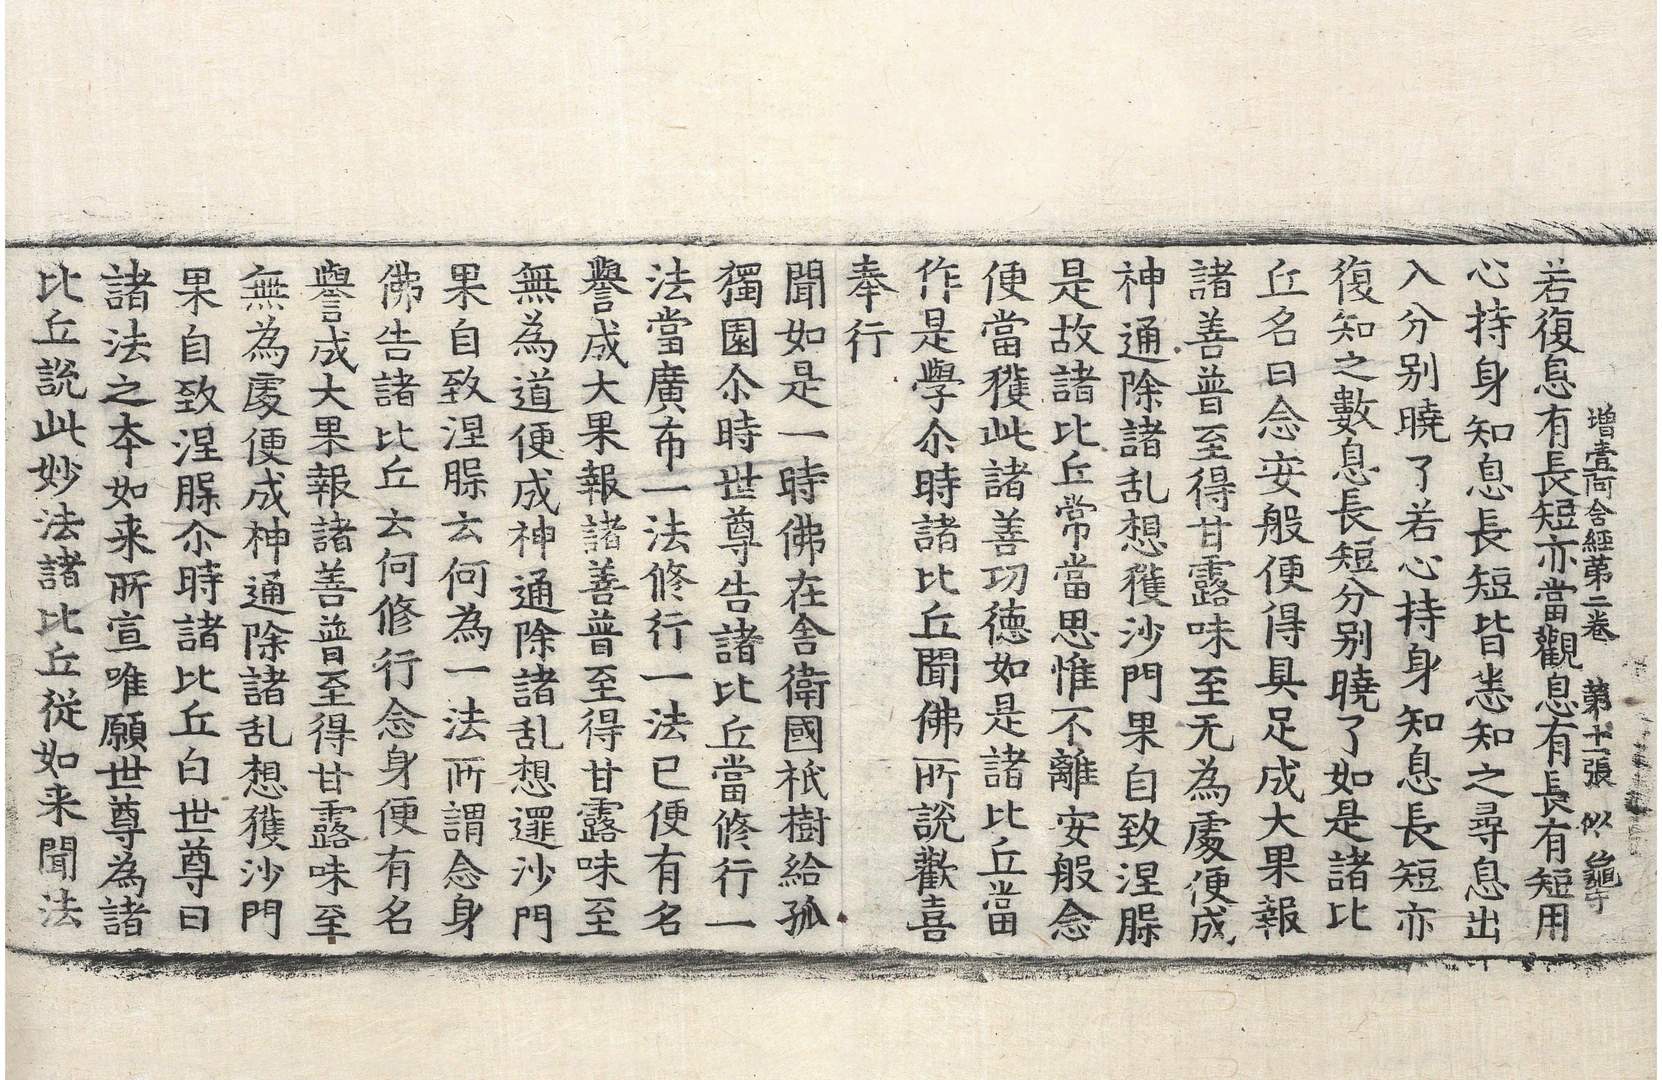 增壹阿含經第二卷 第十二張 似 龜寺
若復息有長短亦當觀息有長有短用
心持身知息長短皆悉知之尋息出
入分别曉了若心持身知息長短亦
復知之數息長短分别曉了如是諸比
丘名曰念安般便得具足成大果報
諸善普至得甘露味至无為處便成
神通除諸乱想獲沙門果自致涅槃
是故諸比丘常當思惟不離安般念
便當獲此諸善功德如是諸比丘當
作是學尒時諸比丘聞佛所說歡喜
奉行
聞如是一時佛在舍衛國祇樹給孤
獨園尒時世尊告諸比丘當修行一
法當廣布一法修行一法已便有名
譽成大果報諸善普至得甘露味至
無為道便成神通除諸乱想逮沙門
果自致涅槃云何為一法所謂念身
佛告諸比丘云何修行念身便有名
譽成大果報諸善普至得甘露味至
無為處便成神通除諸乱想獲沙門
果自致涅槃尒時諸比丘白世尊曰
諸法之本如来所宣唯願世尊為諸
比丘說此妙法諸比丘從如来聞法